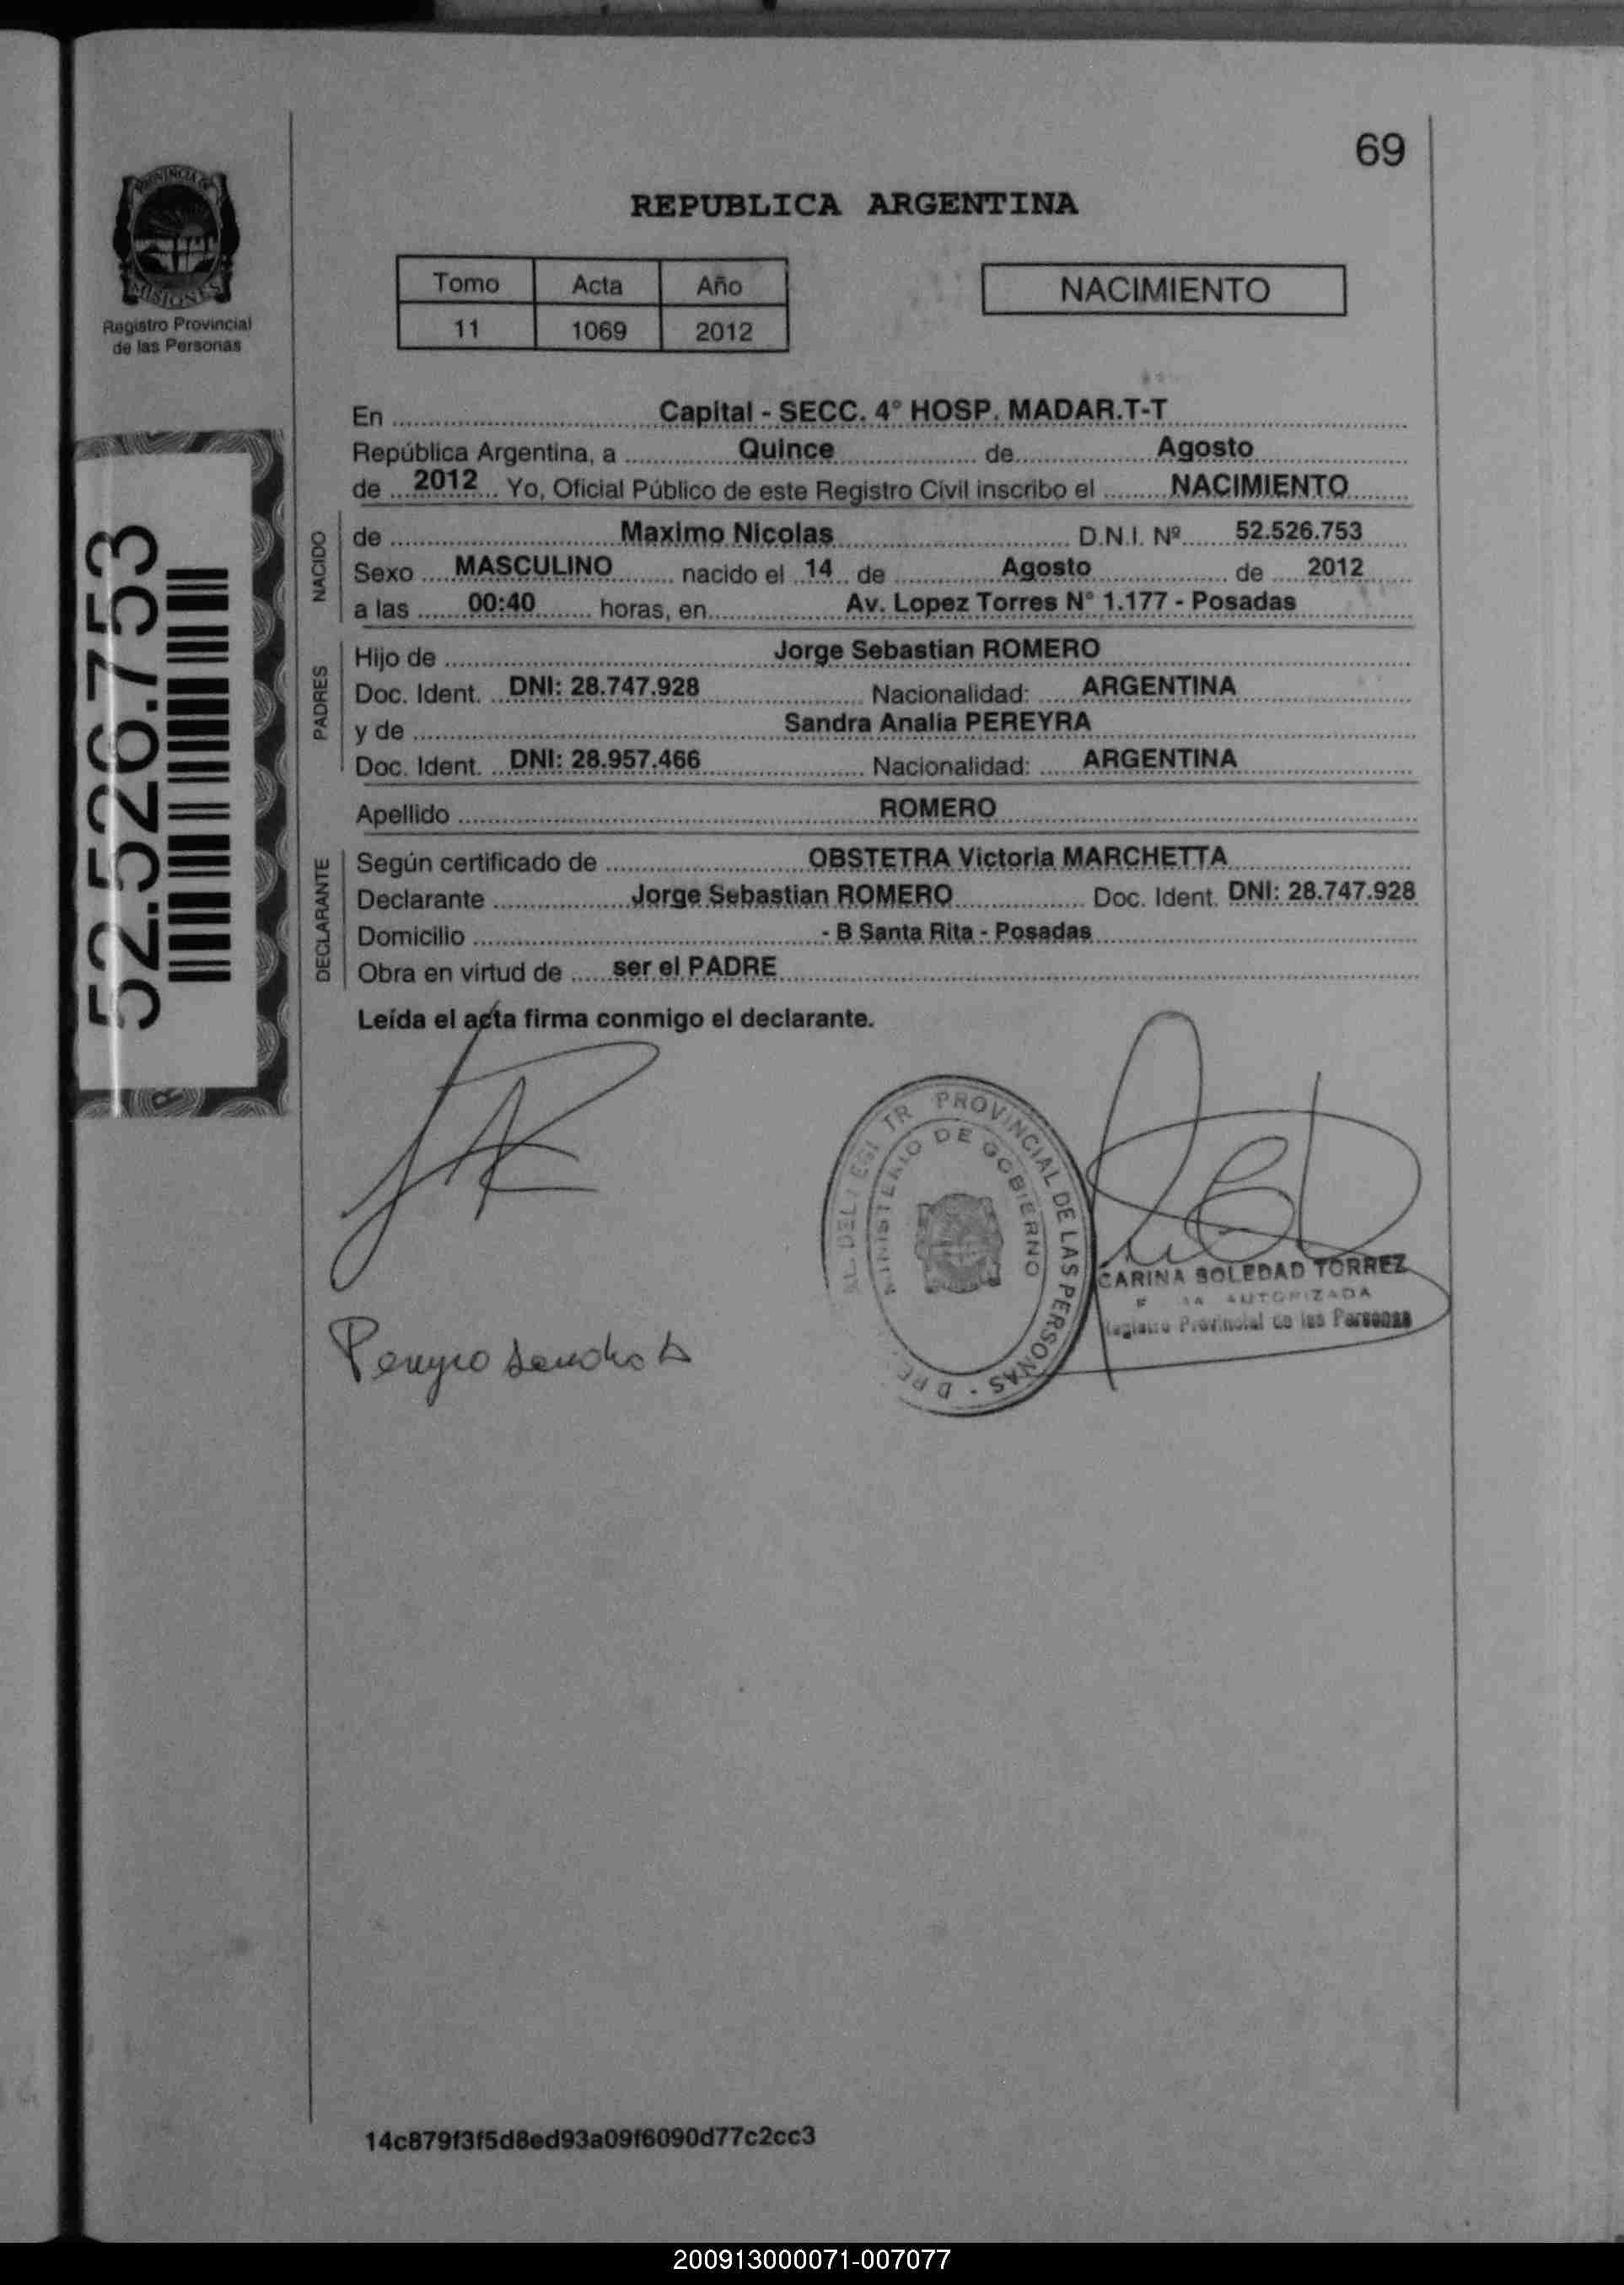 69
PROVINCIA DE
MISIONES
Registro Provincial
de las Personas
REPUBLICA ARGENTINA
Tomo Acta Año
11 1069 2012
NACIMIENTO
En Capital - SECC. 4° HOSP. MADAR.T-T
República Argentina, a Quince de Agosto
de 2012 Yo, Oficial Público de este Registro Civil inscribo el NACIMIENTO
NACIDO
de Maximo Nicolas D.N.I. Nº 52.526.753
Sexo MASCULINO nacido el 14 de Agosto de 2012
a las 00:40 horas, en Av. Lopez Torres N° 1.177 - Posadas
PADRES
Hijo de Jorge Sebastian ROMERO
Doc. Ident. DNI: 28.747.928 Nacionalidad: ARGENTINA
y de Sandra Analia PEREYRA
Doc. Ident. DNI: 28.957.466 Nacionalidad: ARGENTINA
Apellido ROMERO
DECLARANTE
Según certificado de OBSTETRA Victoria MARCHETTA
Declarante Jorge Sebastian ROMERO Doc. Ident. DNI: 28.747.928
Domicilio - B Santa Rita - Posadas
Obra en virtud de ser el PADRE
Leída el acta firma conmigo el declarante.
52.526.753
PROVINCIAL DE LAS PERSONAS
MINISTERIO DE GOBIERNO
CARINA SOLEDAD TORREZ
AUTORIZADA
Registro Provincial de las Personas
Pereyra Sandra A
14c879f3f5d8ed93a09f6090d77c2cc3
200913000071-007077